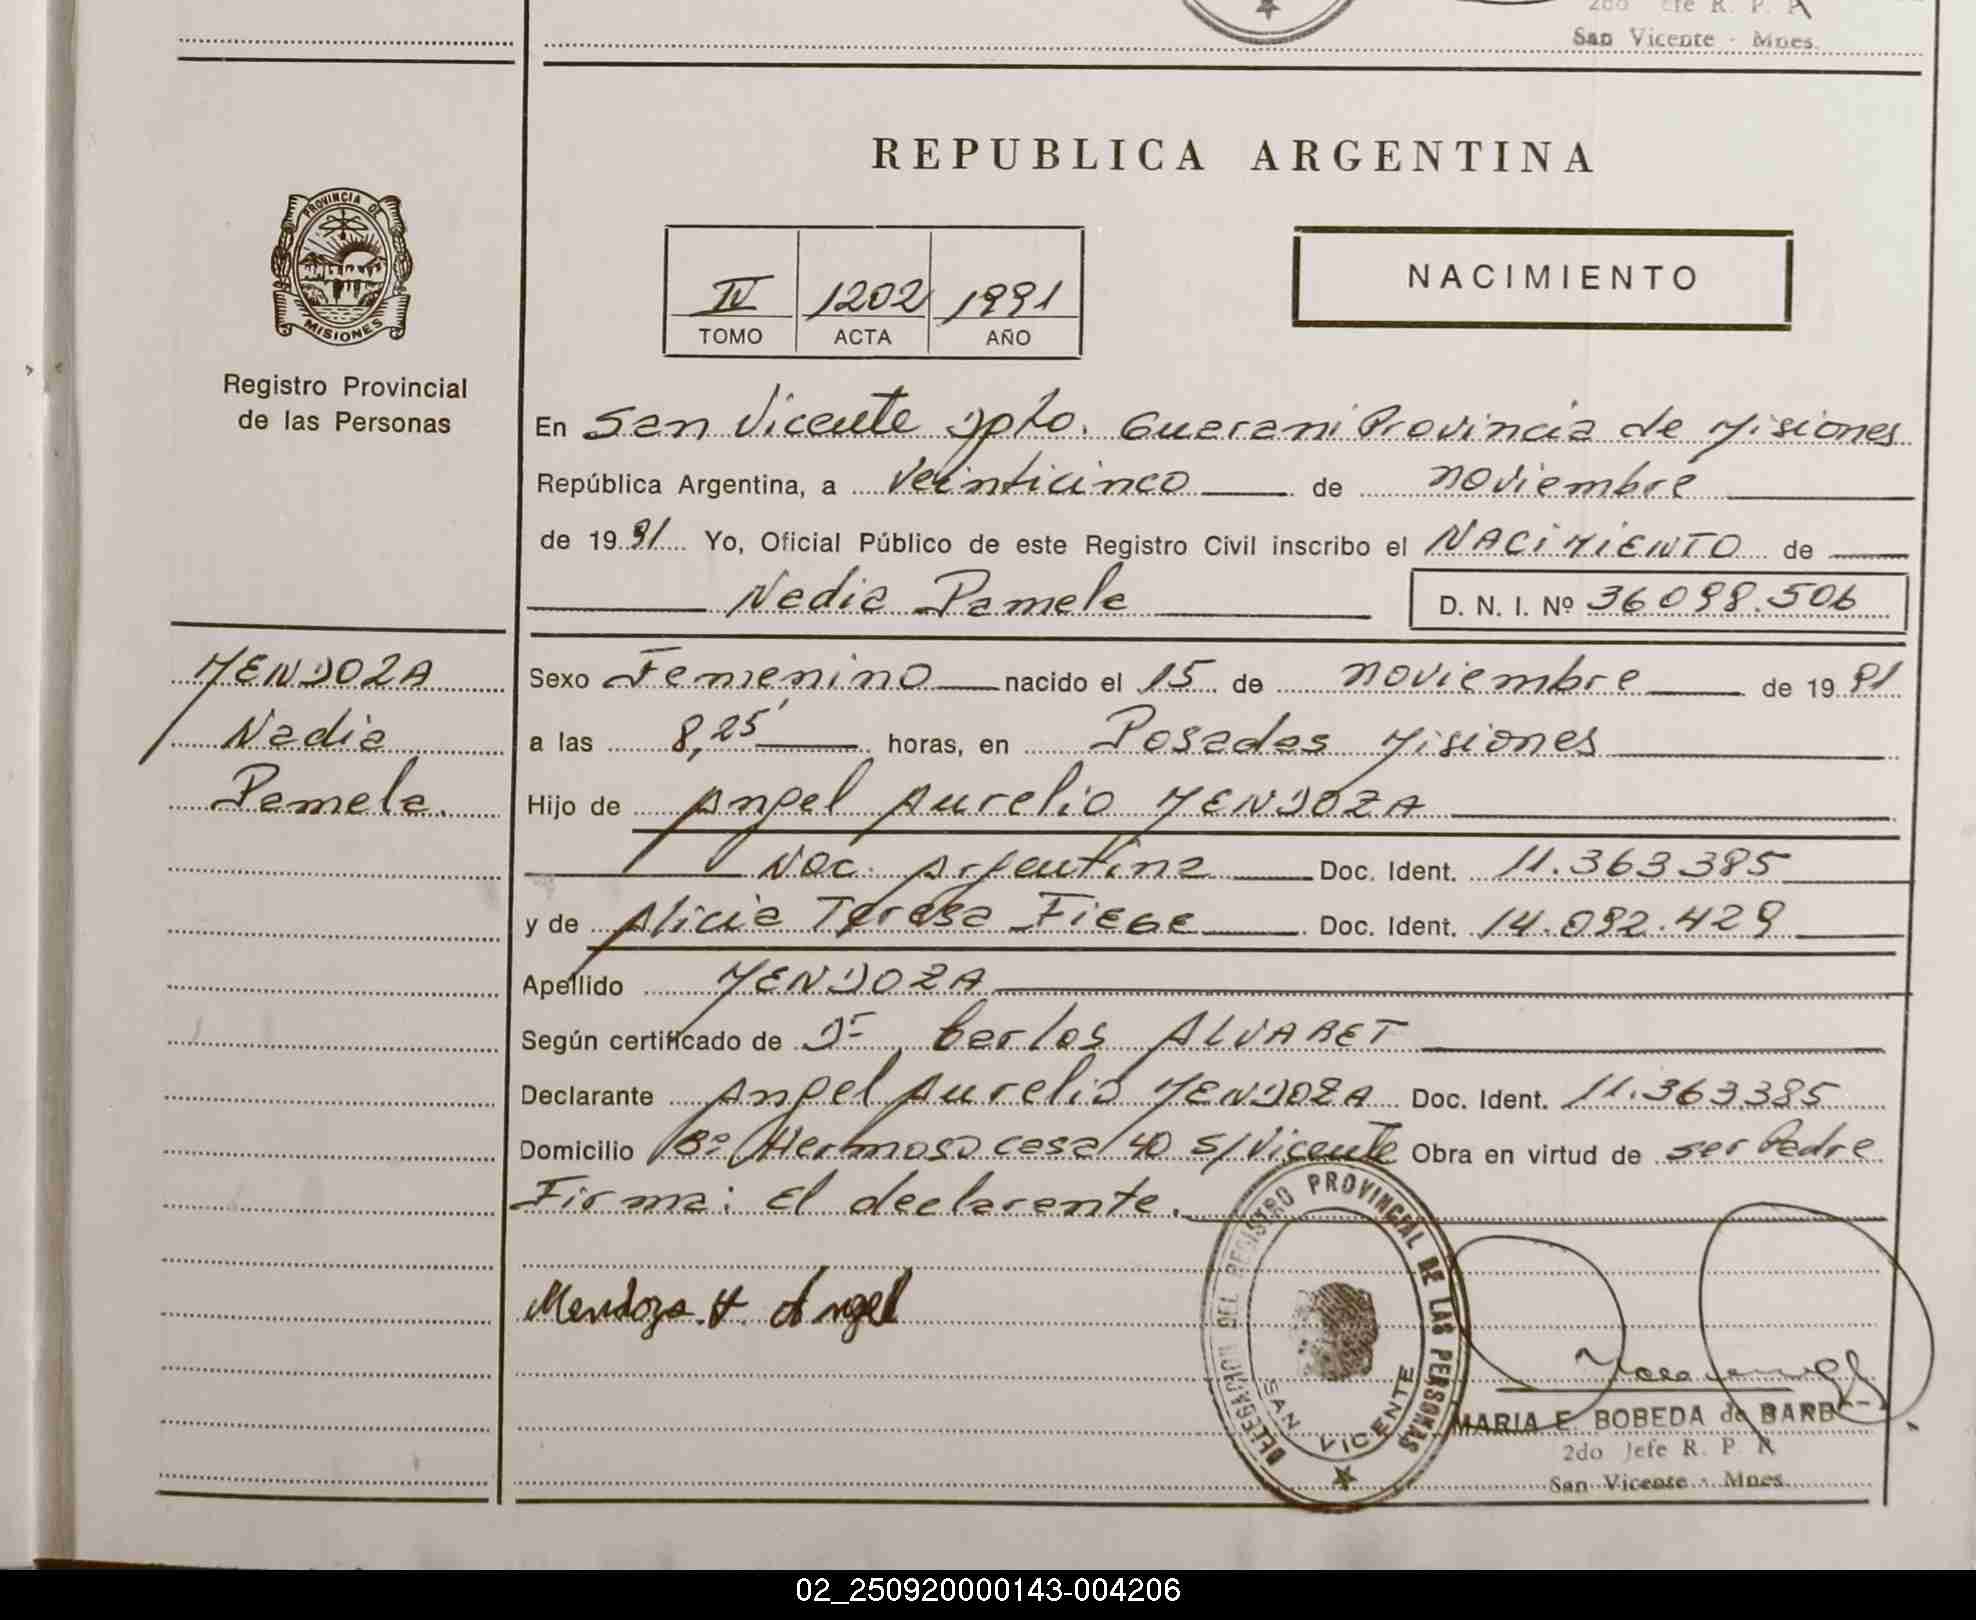 2do Jefe R. P. P.
San Vicente - Mnes.
REPUBLICA ARGENTINA
PROVINCIA DE
MISIONES
Registro Provincial
de las Personas
IV 1202 1991
TOMO ACTA AÑO
NACIMIENTO
En San Vicente Dpto. Guarani Provincia de Misiones
República Argentina, a veinticinco de noviembre
de 1991 Yo, Oficial Público de este Registro Civil inscribo el NACIMIENTO de
Nadia Pamela D. N. I. Nº 36098.506
MENDOZA
Nadia
Pamela.
Sexo Femenino nacido el 15 de noviembre de 1991
a las 8,25' horas, en Posadas Misiones
Hijo de Angel Aurelio MENDOZA
Nac. Argentina Doc. Ident. 11.363.385
y de Alicia Teresa FIEGE Doc. Ident. 14.092.429
Apellido MENDOZA
Según certificado de Dr Carlos ALVARET
Declarante Angel Aurelio MENDOZA Doc. Ident. 11.363.385
Domicilio Bº Hermoso casa 40 S/Vicente Obra en virtud de ser Padre
Firma: El declarante.
Mendoza A. Angel
DELEGACION DEL REGISTRO PROVINCIAL DE LAS PERSONAS
SAN VICENTE
MARIA E. BOBEDA de BARB
2do Jefe R. P. P.
San Vicente - Mnes.
02_250920000143-004206